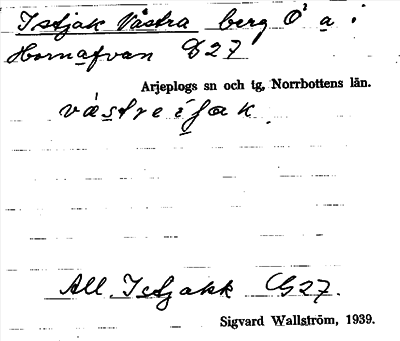 Istjak Västra berg Ö² a i
Hornafvan D27
Arjeplogs sn och tg, Norrbottens län.
västre i
All. Istjakk G27.
Sigvard Wallström, 1939.